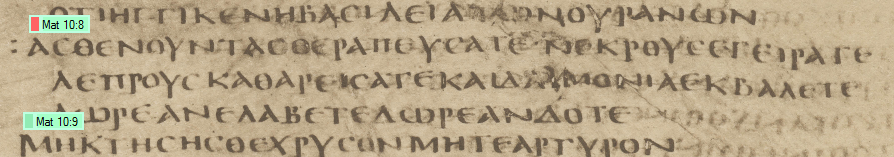 ΟΤΙΗΓΓΙΚΕΝΗΒΑCΙΛΕΙΑΤΩΝΟΥΡΑΝΩΝ
Mat 10:8
ΑCΘΕΝΟΥΝΤΑCΘΕΡΑΠΕΥCΑΤΕ ΝΕΚΡΟΥCΕΓΕΙΡΑΤΕ
ΛΕΠΡΟΥCΚΑΘΑΡΕΙCΑΤΕΚΑΙΔΑΙΜΟΝΙΑΕΚΒΑΛΕΤΕ
ΔΩΡΕΑΝΕΛΑΒΕΤΕΔΩΡΕΑΝΔΟΤΕ
Mat 10:9
ΜΗΚΤΗCΗCΘΕΧΡΥCΟΝΜΗΤΕΑΡΓΥΡΟΝ